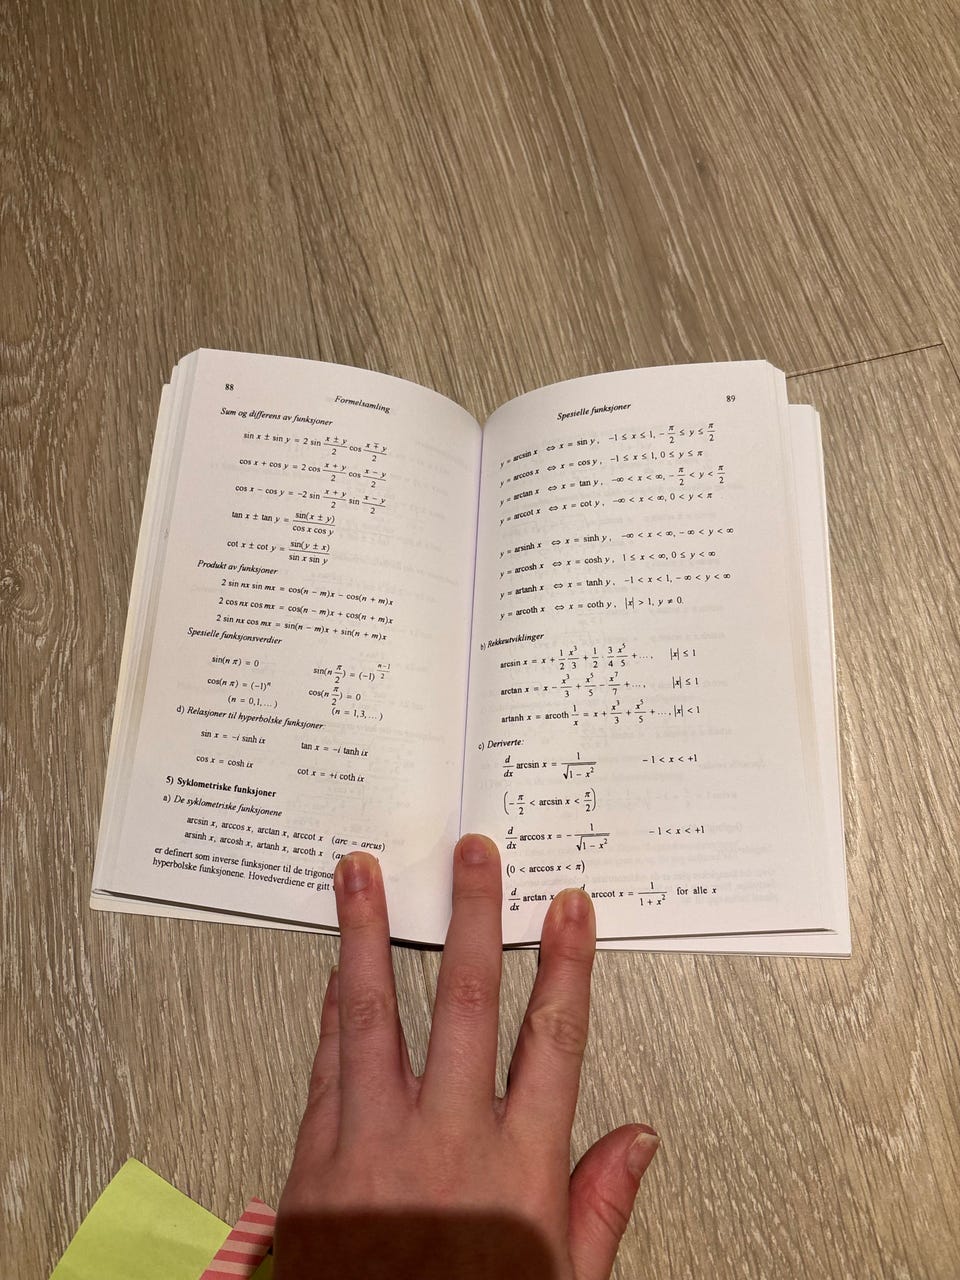 88
Formelsamling
Sum og differens av funksjoner
sin x ± sin y = 2 sin (x ± y)/2 cos (x ∓ y)/2
cos x + cos y = 2 cos (x + y)/2 cos (x − y)/2
cos x − cos y = −2 sin (x + y)/2 sin (x − y)/2
tan x ± tan y = sin(x ± y)/(cos x cos y)
cot x ± cot y = sin(y ± x)/(sin x sin y)
Produkt av funksjoner
2 sin nx sin mx = cos(n − m)x − cos(n + m)x
2 cos nx cos mx = cos(n − m)x + cos(n + m)x
2 sin nx cos mx = sin(n − m)x + sin(n + m)x
Spesielle funksjonsverdier
sin(n π) = 0 sin(n π/2) = (−1)^((n−1)/2)
cos(n π) = (−1)^n cos(n π/2) = 0
(n = 0,1,...) (n = 1,3,...)
d) Relasjoner til hyperbolske funksjoner:
sin x = −i sinh ix tan x = −i tanh ix
cos x = cosh ix cot x = +i coth ix
5) Syklometriske funksjoner
a) De syklometriske funksjonene
arcsin x, arccos x, arctan x, arccot x (arc = arcus)
arsinh x, arcosh x, artanh x, arcoth x
er definert som inverse funksjoner til de
hyperbolske funksjonene. Hovedverdiene er gitt
89
Spesielle funksjoner
y = arcsin x ⇔ x = sin y, −1 ≤ x ≤ 1, −π/2 ≤ y ≤ π/2
y = arccos x ⇔ x = cos y, −1 ≤ x ≤ 1, 0 ≤ y ≤ π
y = arctan x ⇔ x = tan y, −∞ < x < ∞, −π/2 < y < π/2
y = arccot x ⇔ x = cot y, −∞ < x < ∞, 0 < y < π
y = arsinh x ⇔ x = sinh y, −∞ < x < ∞, −∞ < y < ∞
y = arcosh x ⇔ x = cosh y, 1 ≤ x < ∞, 0 ≤ y < ∞
y = artanh x ⇔ x = tanh y, −1 < x < 1, −∞ < y < ∞
y = arcoth x ⇔ x = coth y, |x| > 1, y ≠ 0.
b) Rekkeutviklinger
arcsin x = x + 1/2 x^3/3 + 1/2 · 3/4 x^5/5 + ..., |x| ≤ 1
arctan x = x − x^3/3 + x^5/5 − x^7/7 + ..., |x| ≤ 1
artanh x = arcoth 1/x = x + x^3/3 + x^5/5 + ..., |x| < 1
c) Deriverte:
d/dx arcsin x = 1/√(1 − x^2) −1 < x < +1
(−π/2 < arcsin x < π/2)
d/dx arccos x = −1/√(1 − x^2) −1 < x < +1
(0 < arccos x < π)
d/dx arctan x arccot x = 1/(1 + x^2) for alle x